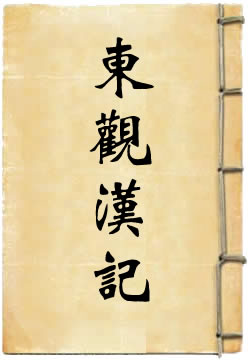 東觀漢記